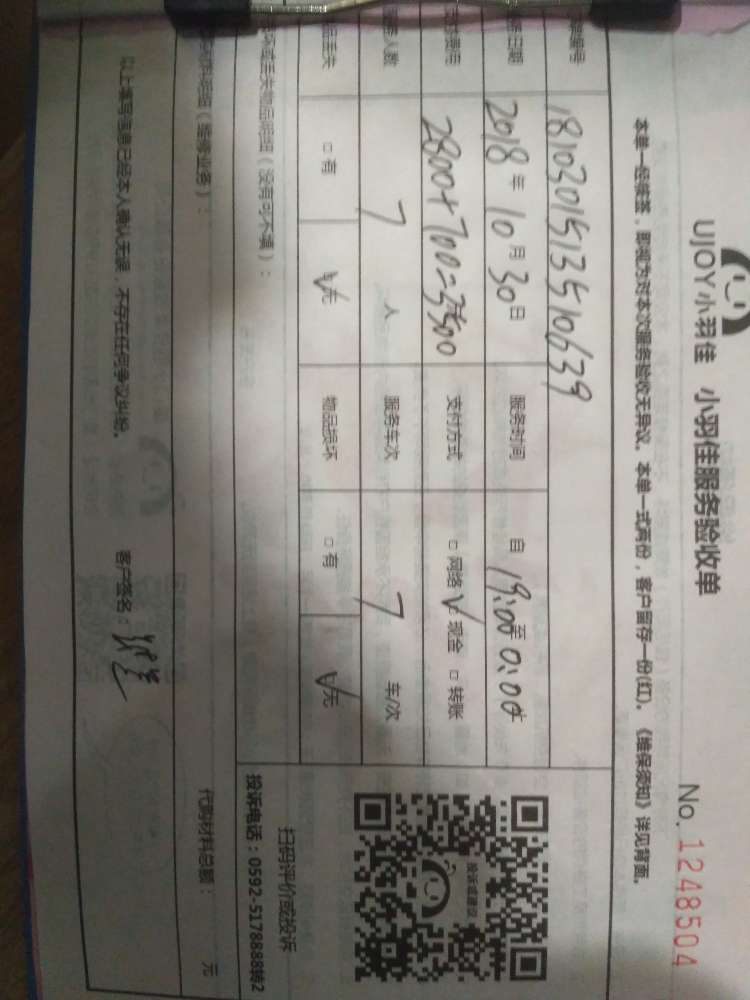 UJOY小羽佳 小羽佳服务验收单 No. 1248504
本单一经签签，即视为对本次服务验收无异议。本单一式两份，客户留存一份(红)。《维保须知》详见背面。
编号 1810301513510639
日期 2018年10月30日 服务时间 自19:00至0:00
费用 2800+700=3500 支付方式 □网络 √现金 □转账
人数 7人 服务车次 7车/次
丢失 □有 √无 物品损坏 □有 √无
丢失物品明细（没有可不填）：
投诉或建议
扫码评价或投诉
投诉电话：0592-5178888转2
明细（维修业务）： 代购材料总额： 元
以上填写信息已经本人确认无误，不存在任何争议纠纷。 客户签名：